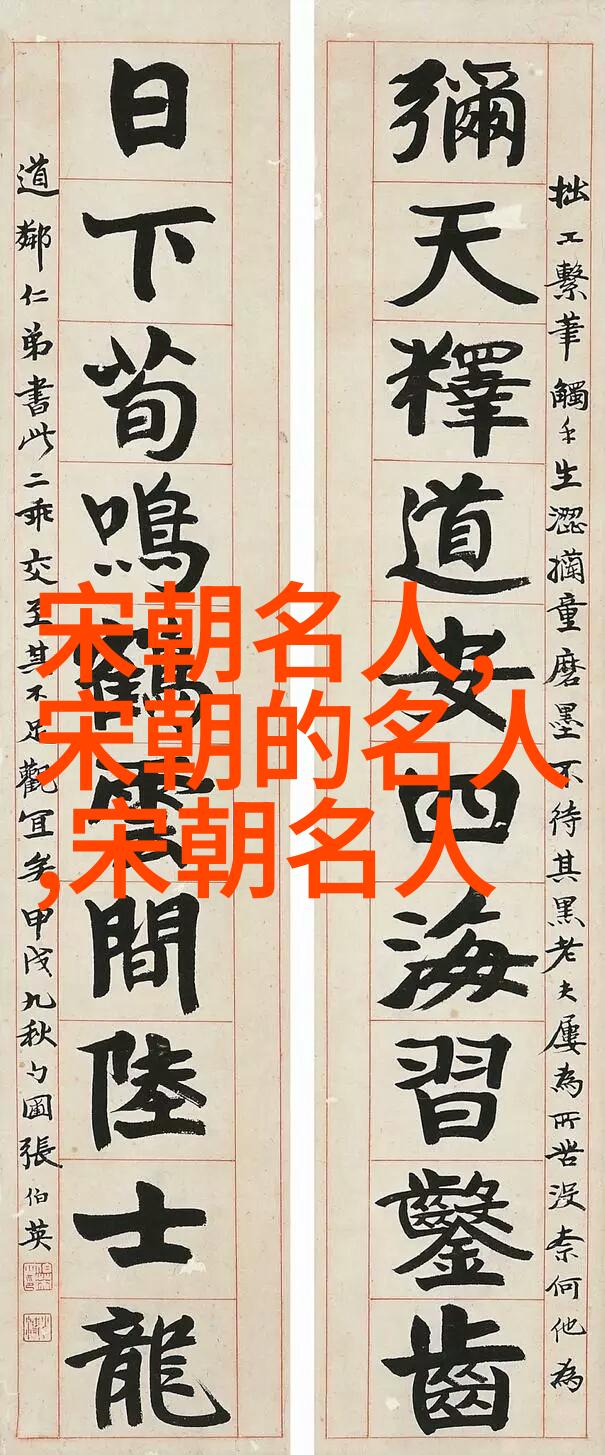 拙工繫筆觸手生澀童磨墨不待其黑老夫屢為所苦没柰何他為
彌天釋道安四海習鑿齒
日下荀鳴鶴雲間陸士龍
道鄰仁弟書此二乖交至其不足觀宜矣甲戌九秋勺圃張伯英
宋朝名人,
宋朝的名人
,宋朝名人